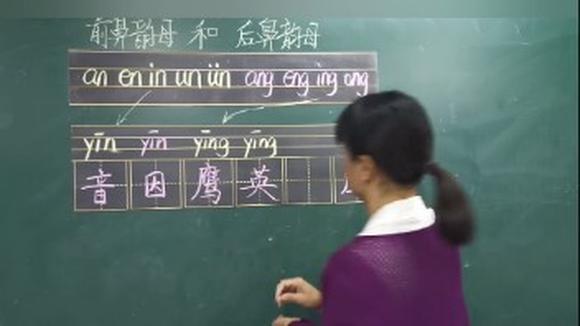 前鼻韵母 和 后鼻韵母
an en in un ün ang eng ing ong
yīn yīn yīng yīng
音 因 鹰 英